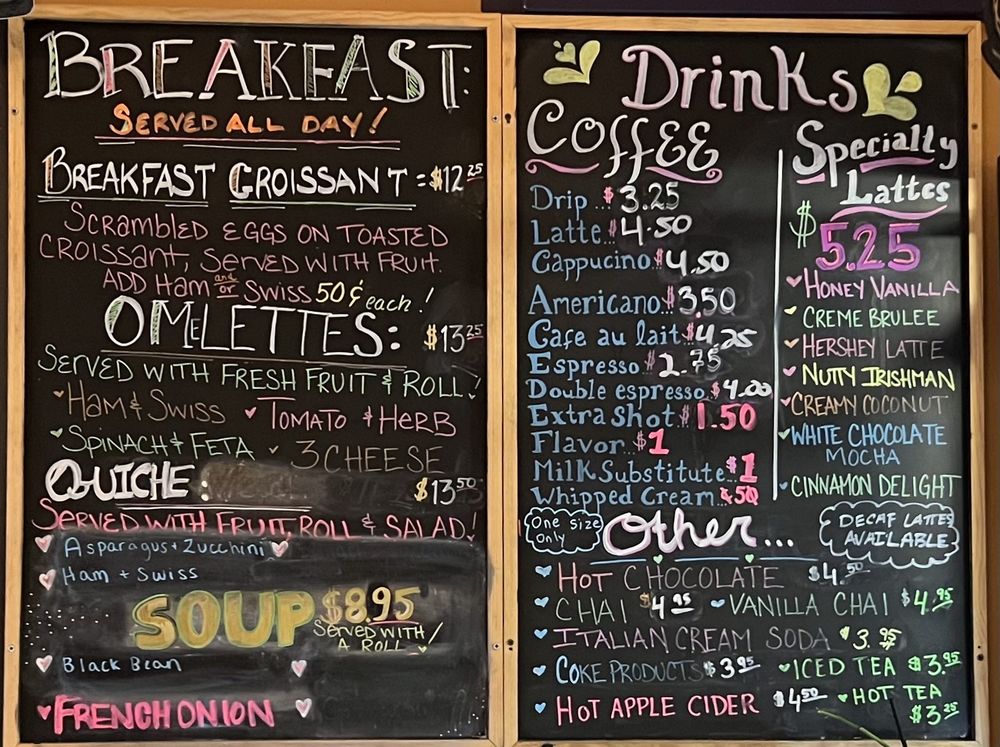 BREAKFAST:
SERVED ALL DAY!
BREAKFAST CROISSANT = $12.25
SCRAMBLED EGGS ON TOASTED
CROISSANT, SERVED WITH FRUIT.
ADD HAM and/or SWISS 50¢ each!
OMELETTES: $13.25
SERVED WITH FRESH FRUIT & ROLL!
HAM & SWISS TOMATO & HERB
SPINACH & FETA 3 CHEESE
QUICHE: $13.50
SERVED WITH FRUIT, ROLL & SALAD!
Asparagus + Zucchini
Ham + Swiss
SOUP $8.95
SERVED WITH
A ROLL
Black Bean
FRENCH ONION
Drinks
COFFEE
Drip...$3.25
Latte..$4.50
Cappucino..$4.50
Americano..$3.50
Cafe au lait..$4.25
Espresso..$2.75
Double espresso..$4.00
Extra Shot..$1.50
Flavor..$1
Milk Substitute..$1
Whipped Cream..$.50
One size
Only
Specialty
Lattes
$5.25
HONEY VANILLA
CREME BRULEE
HERSHEY LATTE
NUTTY IRISHMAN
CREAMY COCONUT
WHITE CHOCOLATE
MOCHA
CINNAMON DELIGHT
DECAF LATTES
AVAILABLE
Other...
HOT CHOCOLATE $4.50
CHAI $4.95 VANILLA CHAI $4.95
ITALIAN CREAM SODA $3.95
COKE PRODUCTS $3.95 ICED TEA $3.95
HOT APPLE CIDER $4.50 HOT TEA
$3.25